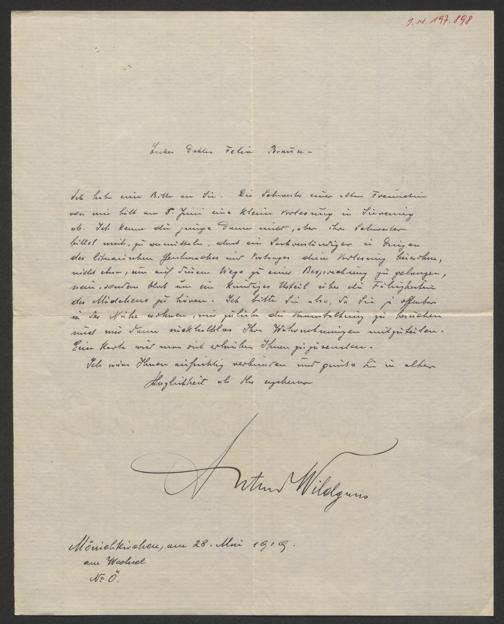 I. N. 197.898
Lieber Doktor Felix Braun –
Ich habe eine Bitte an Sie. Die Schwester einer alten Freundin
von mir hält am 8. Juni eine kleine Vorlesung in Sievering
ab. Ich kenne die junge Dame nicht, aber ihre Schwester
bittet mich, zu vermitteln, daß ein Sachverständiger in Dingen
des literarischen Geschmackes und Vortrages dieser Vorlesung beiwohne,
nicht etwa, um auf diesem Wege zu einer Besprechung zu gelangen,
nein, sondern bloß um ein kundiges Urteil über die Fähigkeiten
des Mädchens zu hören. Ich bitte Sie also, da Sie ja
in der Nähe wohnen, mir zuliebe die Veranstaltung zu besuchen
und mir dann rückhaltlos Ihre Wahrnehmungen mitzuteilen.
Eine Karte wird man sich erlauben Ihnen zuzusenden.
Ich wäre Ihnen aufrichtig verbunden und grüße Sie in alter
Herzlichkeit als Ihr ergebener
Anton Wildgans
Mönichkirchen, am 28. Mai 1919.
am Wechsel
N. Ö.